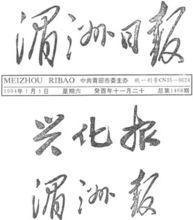 湄洲日报
MEIZHOU RIBAO 中共莆田市委主办 统一刊号CN35-0024
1994年1月1日 星期六 癸酉年十一月二十 总第1468期
兴化报
湄洲报